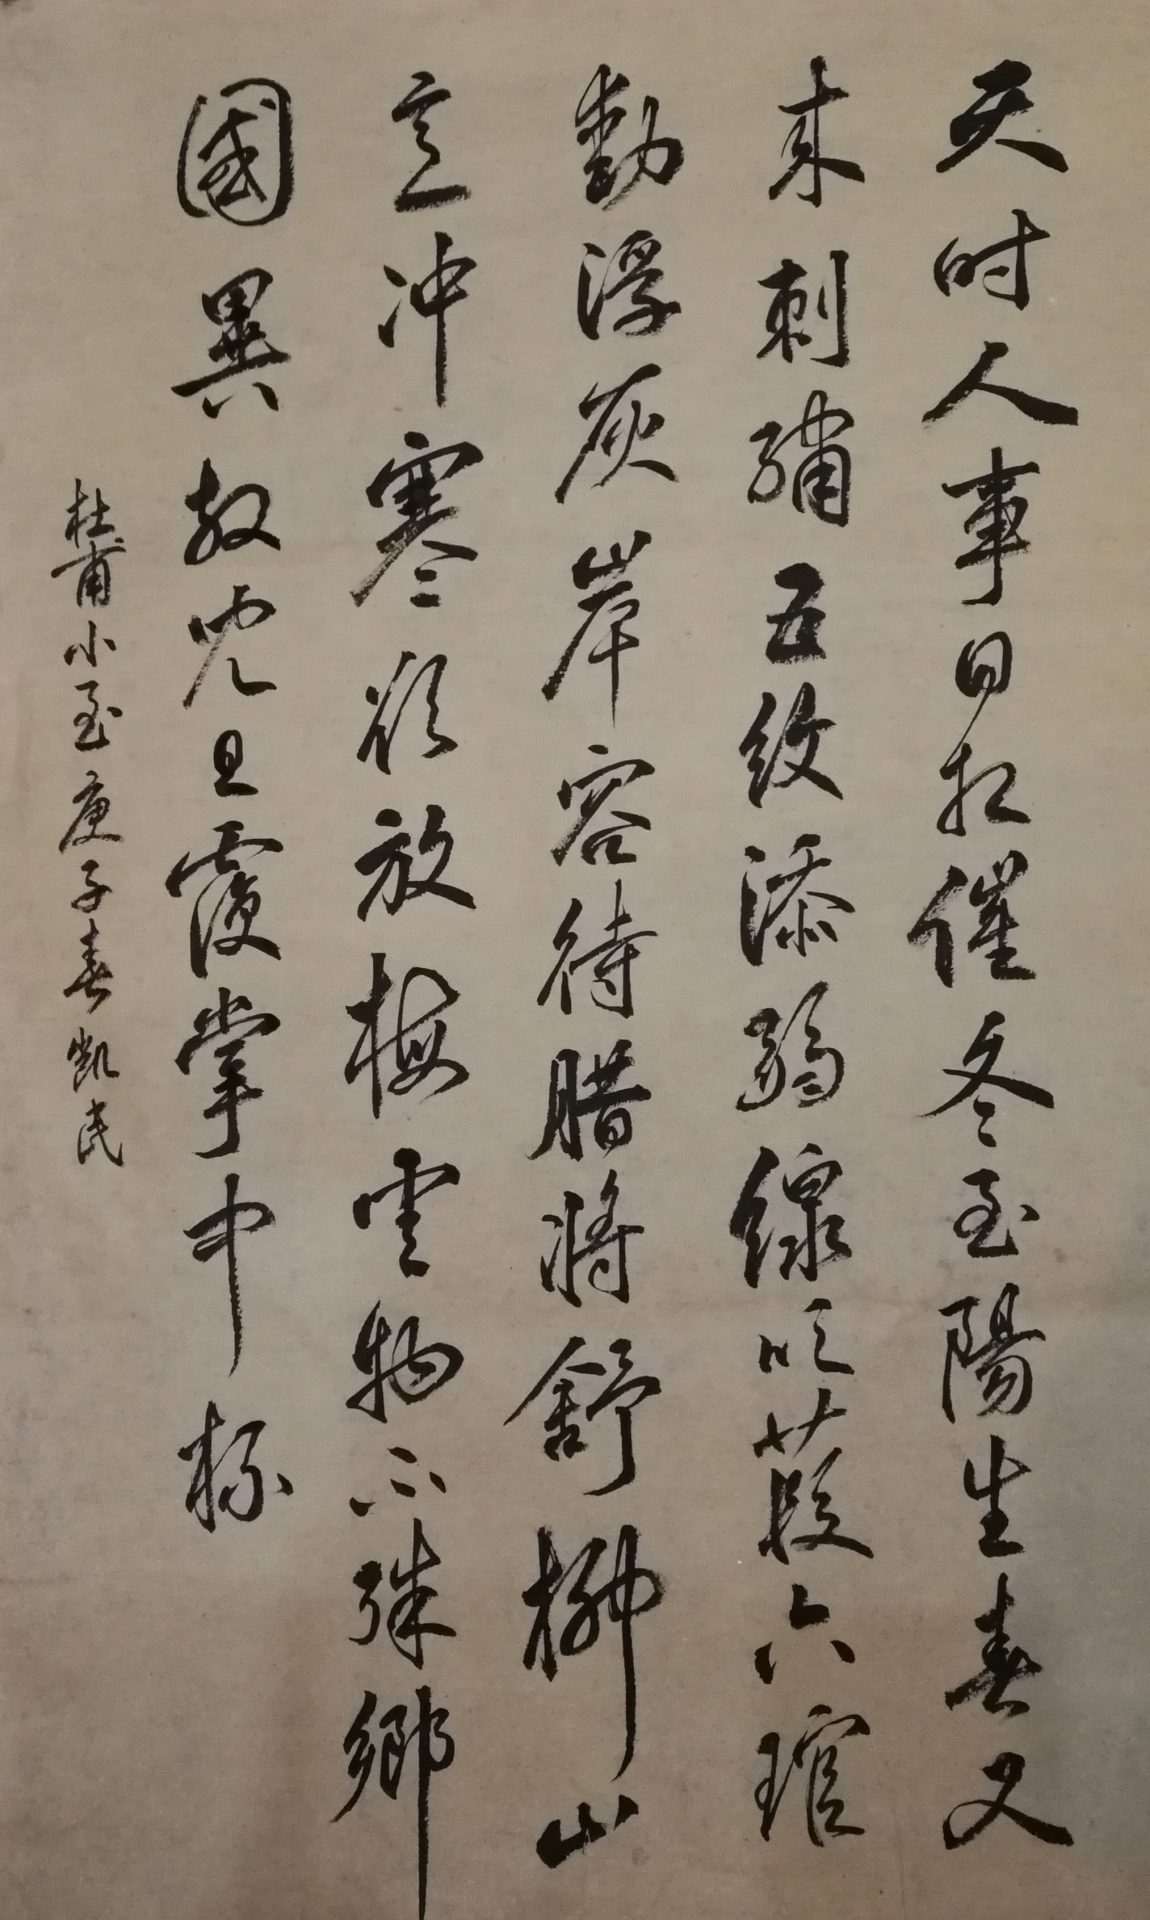 天时人事日相催冬至陽生春又
来刺繡五纹添弱線吹葭六琯
動浮灰岸容待腊将舒柳山
意冲寒欲放梅雲物不殊鄉
國異教兒且覆掌中杯
杜甫小至庚子春凯民